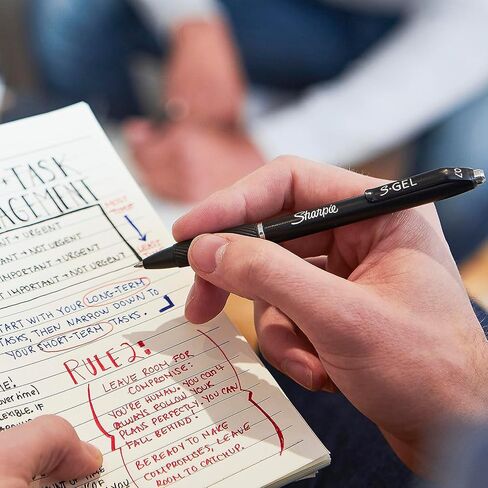 + TASK
NAGEMENT
MOST
LEAST
NT + URGENT
ANT + NOT URGENT
IMPORTANT + URGENT
IMPORTANT + NOT URGENT
START WITH YOUR LONG-TERM
TASKS, THEN NARROW DOWN TO
YOUR SHORT-TERM TASKS.
RULE 2:
LEAVE ROOM FOR
COMPROMISE:
YOU'RE HUMAN. YOU CAN'T
ALWAYS FOLLOW YOUR
PLANS PERFECTLY. YOU CAN
FALL BEHIND.
BE READY TO MAKE
COMPROMISES, LEAVE
ROOM TO CATCHUP.
over time)
FLEXIBLE. IF
OF YOU
Sharpie
S·GEL